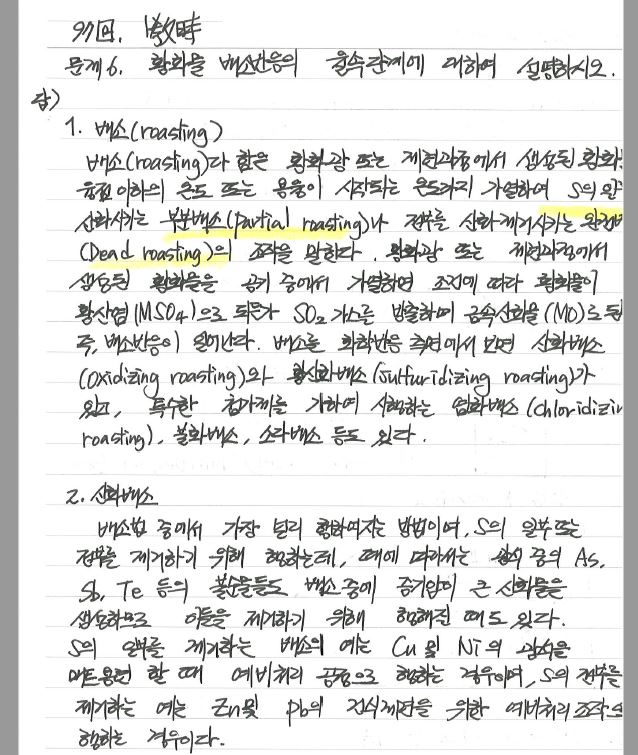 97回. 2敎時
문제6. 황화물 배소반응의 율속단계에 대하여 설명하시오.
답)
1. 배소(roasting)
배소(roasting)라 함은 황화광 또는 제련과정에서 생성된 황화
융점 이하의 온도 또는 용융이 시작되는 온도까지 가열하여 S의 일부
산화시키는 부분배소(Partial roasting)나 전부를 산화제거시키는 완전배
(Dead roasting)의 조작을 말한다. 황화광 또는 제련과정에서
생성된 황화물을 공기 중에서 가열하면 조건에 따라 황화물이
황산염(MSO4)으로 되든가 SO2 가스를 방출하며 금속산화물(MO)로 된
즉, 배소반응이 일어난다. 배소를 화학반응 측면에서 보면 산화배소
(Oxidizing roasting)와 황산화배소(sulfuridizing roasting)가
있고, 특수한 첨가제를 가하여 시행하는 염화배소(chloridizin
roasting), 불화배소, 소다배소 등도 있다.
2. 산화배소
배소법 중에서 가장 널리 행하여지는 방법이며, S의 일부 또는
전부를 제거하기 위해 행하는데, 때에 따라서는 광석 중의 As,
Sb, Te 등의 불순물들도 배소 중에 증기압이 큰 산화물을
생성하므로 이들을 제거하기 위해 행해진 때도 있다.
S의 일부를 제거하는 배소의 예는 Cu 및 Ni의 광석을
매트용련 할 때 예비처리 공정으로 행하는 경우이며, S의 전부를
제거하는 예는 Zn및 Pb의 건식제련을 위한 예비처리 조작으
행하는 경우이다.